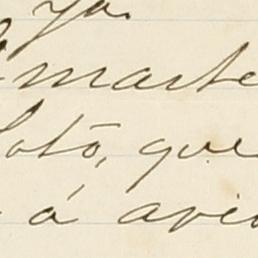 ya
marte
Soto, que
á avi